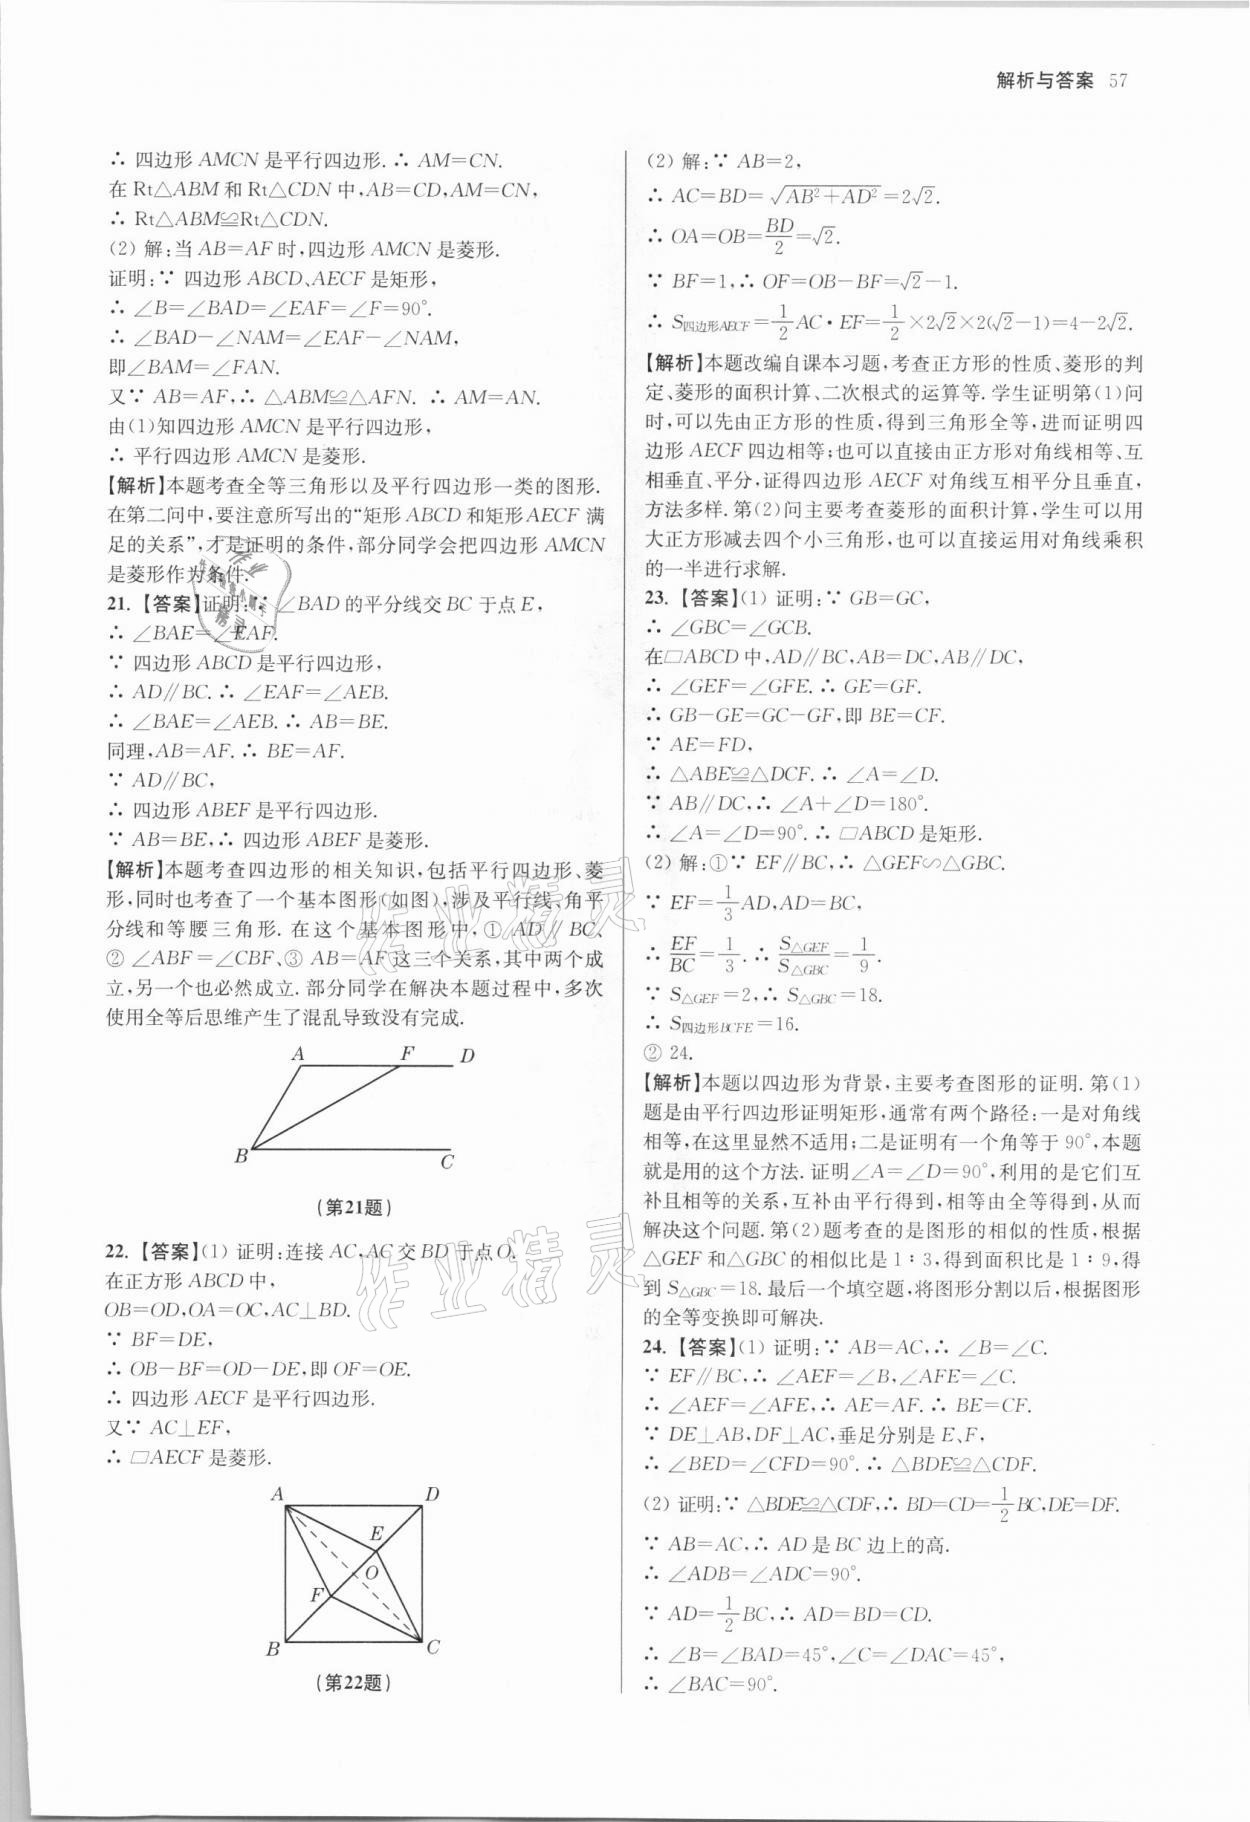 解析与答案 57
∴ 四边形 AMCN 是平行四边形.∴ AM=CN.
在 Rt△ABM 和 Rt△CDN 中,AB=CD,AM=CN,
∴ Rt△ABM≌Rt△CDN.
(2) 解:当 AB=AF 时,四边形 AMCN 是菱形.
证明:∵ 四边形 ABCD、AECF 是矩形,
∴ ∠B=∠BAD=∠EAF=∠F=90°.
∴ ∠BAD-∠NAM=∠EAF-∠NAM,
即∠BAM=∠FAN.
又∵ AB=AF,∴ △ABM≌△AFN. ∴ AM=AN.
由(1)知四边形 AMCN 是平行四边形,
∴ 平行四边形 AMCN 是菱形.
【解析】本题考查全等三角形以及平行四边形一类的图形.
在第二问中,要注意所写出的“矩形 ABCD 和矩形 AECF 满
足的关系”,才是证明的条件,部分同学会把四边形 AMCN
是菱形作为条件.
21. 【答案】证明:∵ ∠BAD 的平分线交 BC 于点 E,
∴ ∠BAE=∠EAF.
∵ 四边形 ABCD 是平行四边形,
∴ AD∥BC.∴ ∠EAF=∠AEB.
∴ ∠BAE=∠AEB.∴ AB=BE.
同理,AB=AF.∴ BE=AF.
∵ AD∥BC,
∴ 四边形 ABEF 是平行四边形.
∵ AB=BE,∴ 四边形 ABEF 是菱形.
【解析】本题考查四边形的相关知识,包括平行四边形、菱
形,同时也考查了一个基本图形(如图),涉及平行线、角平
分线和等腰三角形.在这个基本图形中,① AD∥BC、
② ∠ABF=∠CBF、③ AB=AF 这三个关系,其中两个成
立,另一个也必然成立.部分同学在解决本题过程中,多次
使用全等后思维产生了混乱导致没有完成.
A F D
B C
(第21题)
22. 【答案】(1) 证明:连接 AC,AC 交 BD 于点 O.
在正方形 ABCD 中,
OB=OD,OA=OC,AC⊥BD.
∵ BF=DE,
∴ OB-BF=OD-DE,即 OF=OE.
∴ 四边形 AECF 是平行四边形.
又∵ AC⊥EF,
∴ □AECF 是菱形.
A D
E
O
F
B C
(第22题)
(2) 解:∵ AB=2,
∴ AC=BD=√(AB²+AD²)=2√2.
∴ OA=OB=BD/2=√2.
∵ BF=1,∴ OF=OB-BF=√2-1.
∴ S四边形AECF=1/2 AC·EF=1/2×2√2×2(√2-1)=4-2√2.
【解析】本题改编自课本习题,考查正方形的性质、菱形的判
定、菱形的面积计算、二次根式的运算等.学生证明第(1)问
时,可以先由正方形的性质,得到三角形全等,进而证明四
边形 AECF 四边相等;也可以直接由正方形对角线相等、互
相垂直、平分,证得四边形 AECF 对角线互相平分且垂直,
方法多样.第(2)问主要考查菱形的面积计算,学生可以用
大正方形减去四个小三角形,也可以直接运用对角线乘积
的一半进行求解.
23. 【答案】(1) 证明:∵ GB=GC,
∴ ∠GBC=∠GCB.
在□ABCD 中,AD∥BC,AB=DC,AB∥DC,
∴ ∠GEF=∠GFE.∴ GE=GF.
∴ GB-GE=GC-GF,即 BE=CF.
∵ AE=FD,
∴ △ABE≌△DCF.∴ ∠A=∠D.
∵ AB∥DC,∴ ∠A+∠D=180°.
∴ ∠A=∠D=90°.∴ □ABCD 是矩形.
(2) 解:①∵ EF∥BC,∴ △GEF∽△GBC.
∵ EF=1/3 AD,AD=BC,
∴ EF/BC=1/3.∴ S△GEF/S△GBC=1/9.
∵ S△GEF=2,∴ S△GBC=18.
∴ S四边形BCFE=16.
② 24.
【解析】本题以四边形为背景,主要考查图形的证明.第(1)
题是由平行四边形证明矩形,通常有两个路径:一是对角线
相等,在这里显然不适用;二是证明有一个角等于 90°,本题
就是用的这个方法.证明∠A=∠D=90°,利用的是它们互
补且相等的关系,互补由平行得到,相等由全等得到,从而
解决这个问题.第(2)题考查的是图形的相似的性质,根据
△GEF 和△GBC 的相似比是 1∶3,得到面积比是 1∶9,得
到 S△GBC=18.最后一个填空题,将图形分割以后,根据图形
的全等变换即可解决.
24. 【答案】(1) 证明:∵ AB=AC,∴ ∠B=∠C.
∵ EF∥BC,∴ ∠AEF=∠B,∠AFE=∠C.
∴ ∠AEF=∠AFE,∴ AE=AF.∴ BE=CF.
∵ DE⊥AB,DF⊥AC,垂足分别是 E、F,
∴ ∠BED=∠CFD=90°.∴ △BDE≌△CDF.
(2) 证明:∵ △BDE≌△CDF,∴ BD=CD=1/2 BC,DE=DF.
∵ AB=AC,∴ AD 是 BC 边上的高.
∴ ∠ADB=∠ADC=90°.
∵ AD=1/2 BC,∴ AD=BD=CD.
∴ ∠B=∠BAD=45°,∠C=∠DAC=45°,
∴ ∠BAC=90°.
作业精灵
作业精灵